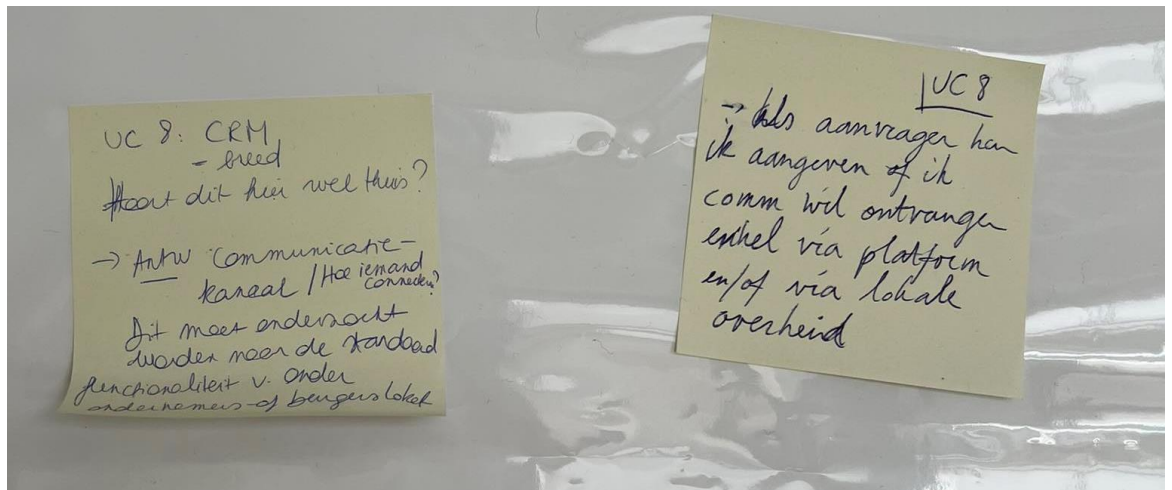 UC 8: CRM
- breed
Hoort dit hier wel thuis?
→ Antw Communicatie-
kanaal / Hoe iemand
connecten?
Dit moet onderzocht
worden naar de standaard
functionaliteit v. onder
ondernemers- of burgersloket
UC 8
→ Als aanvrager kan
ik aangeven of ik
comm wil ontvangen
enkel via platform
en/of via lokale
overheid